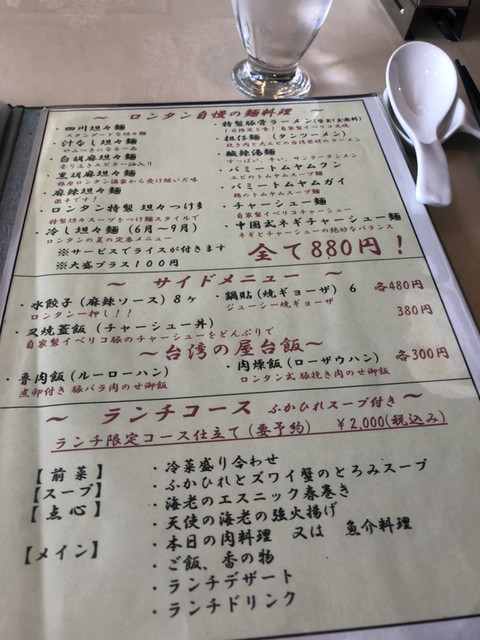 ～ ロンタン自慢の麺料理 ～
・四川坦々麺
スタンダードな坦々麺
・汁なし坦々麺
・白胡麻坦々麺
香り
・黒胡麻坦々麺
・麻辣坦々麺
激辛です！
・ロンタン特製 坦々つけ麺
特製坦々スープをつけ麺スタイルで
・冷し坦々麺（6月～9月）
ロンタンの夏の定番メニュー
※サービスでライスが付きます
※大盛プラス１００円
・特製豚骨ラーメン
・担仔麺（タンツーメン）
挽き肉と
・酸辣湯麺
すっぱい、辛い、サンラータンメン
・バミートムヤムクン
エビのトムヤムスープ麺
・バミートムヤムガイ
鶏のトムヤムスープ麺
・チャーシュー麺
自家製イベリコチャーシュー
・中国式ネギチャーシュー麺
ネギとチャーシューの絶妙なバランス
全て880円！
～ サイドメニュー ～
・水餃子（麻辣ソース）８ヶ ・鍋貼（焼ギョーザ）６ 各480円
ロンタン一押し！！ ジューシー焼ギョーザ
・叉焼蓋飯（チャーシュー丼） 380円
自家製イベリコ豚のチャーシューをどんぶりで
～台湾の屋台飯～
・魯肉飯（ルーローハン） ・肉燥飯（ローザウハン） 各300円
煮卵付き 豚バラ肉のせ御飯 ロンタン式 豚挽き肉のせ御飯
～ ランチコース ふかひれスープ付き ～
ランチ限定コース仕立て（要予約） ￥2,000（税込み）
【前菜】 ・冷菜盛り合わせ
【スープ】 ・ふかひれとズワイ蟹のとろみスープ
【点心】 ・海老のエスニック春巻き
・天使の海老の強火揚げ
【メイン】 ・本日の肉料理 又は 魚介料理
・ご飯、香の物
・ランチデザート
・ランチドリンク